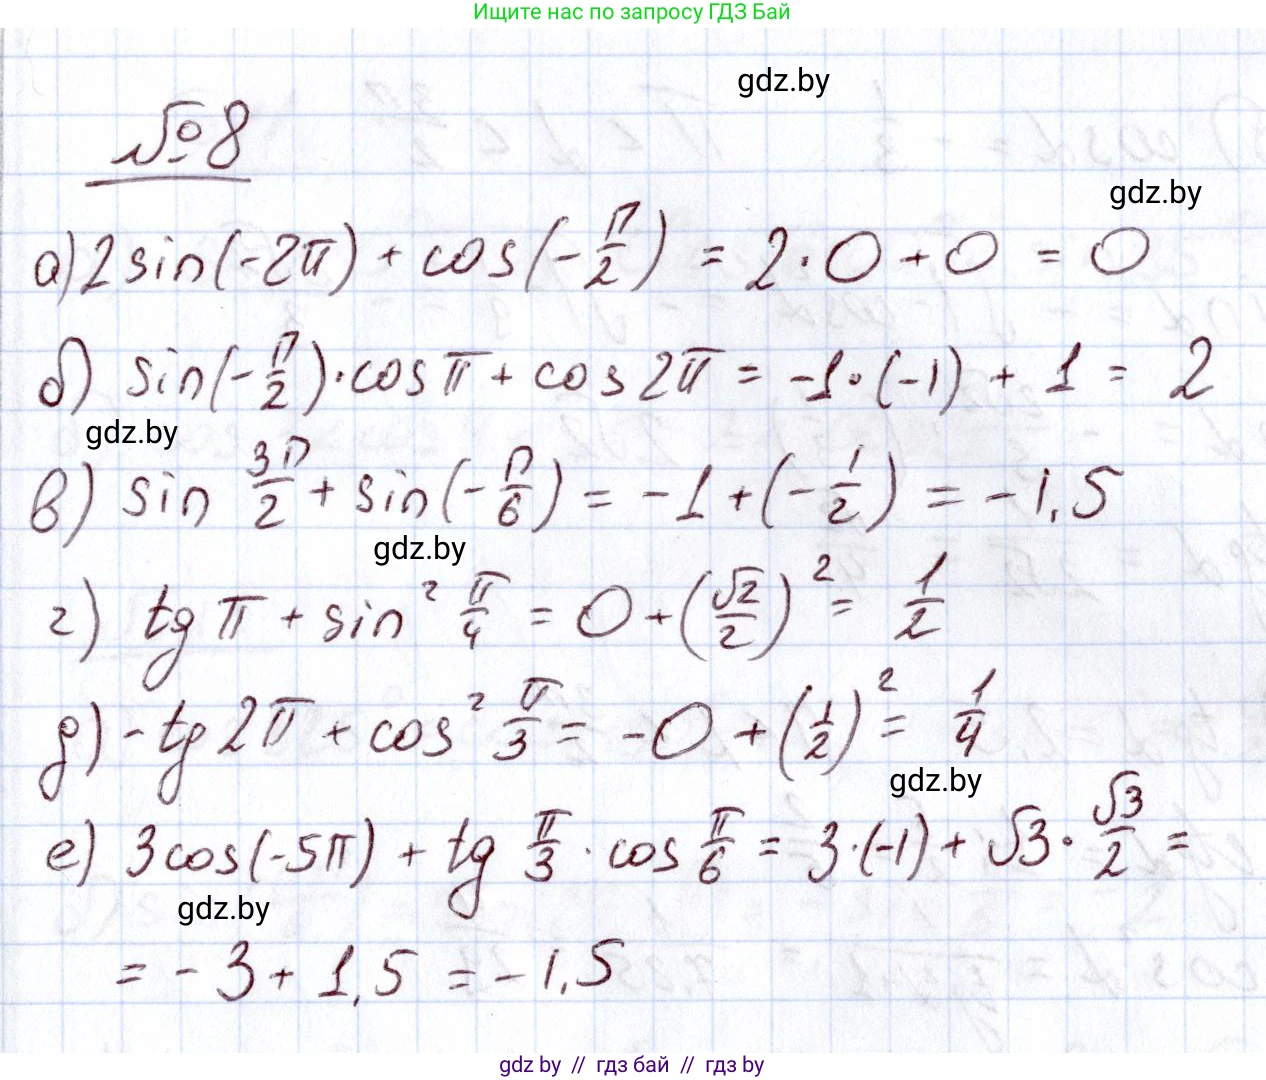 Ищите нас по запросу ГДЗ Бай
gdz.by
№8
gdz.by
а) 2sin(-2π) + cos(-π/2) = 2·0+0 = 0
б) sin(-π/2)·cosπ + cos2π = -1·(-1) + 1 = 2
gdz.by
в) sin 3π/2 + sin(-π/6) = -1+(-1/2) = -1,5
gdz.by
г) tgπ + sin² π/4 = 0+(√2/2)² = 1/2
д) -tg2π + cos² π/3 = -0 + (1/2)² = 1/4
gdz.by
е) 3cos(-5π) + tg π/3 · cos π/6 = 3·(-1)+√3·√3/2 =
gdz.by
= -3+1,5 = -1,5
gdz.by // гдз бай // гдз by